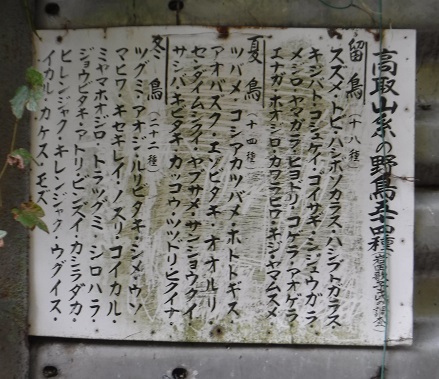 高取山系の野鳥五十四種
留鳥(十八種)
スズメ・トビ・ハシボソカラス・ハシブトカラス・
キジバト・コジュケイ・ゴイサギ・シジュウガラ・
メジロ・ヤマガラ・ヒヨドリ・コゲラ・アオゲラ・
エナガ・ホオジロ・カワラヒワ・キジ・ヤマムスメ・
夏鳥(十四種)
ツバメ・コシアカツバメ・ホトトギス・
アオバズク・エゾビタキ・オオルリ・
センダイムシクイ・ヤブサメ・サンショウクイ・
サシバ・キビタキ・カッコウ・ツツドリ・ヒクイナ・
冬鳥(二十二種)
ツグミ・アオジ・ルリビタキ・シメ・ウソ・
マヒワ・キセキレイ・ノスリ・コイカル・
ミヤマホオジロ・トラツグミ・シロハラ・
ジョウビタキ・アトリ・ビンズイ・カシラダカ・
ヒレンジャク・キレンジャク・ウグイス・
イカル・カケス・モズ